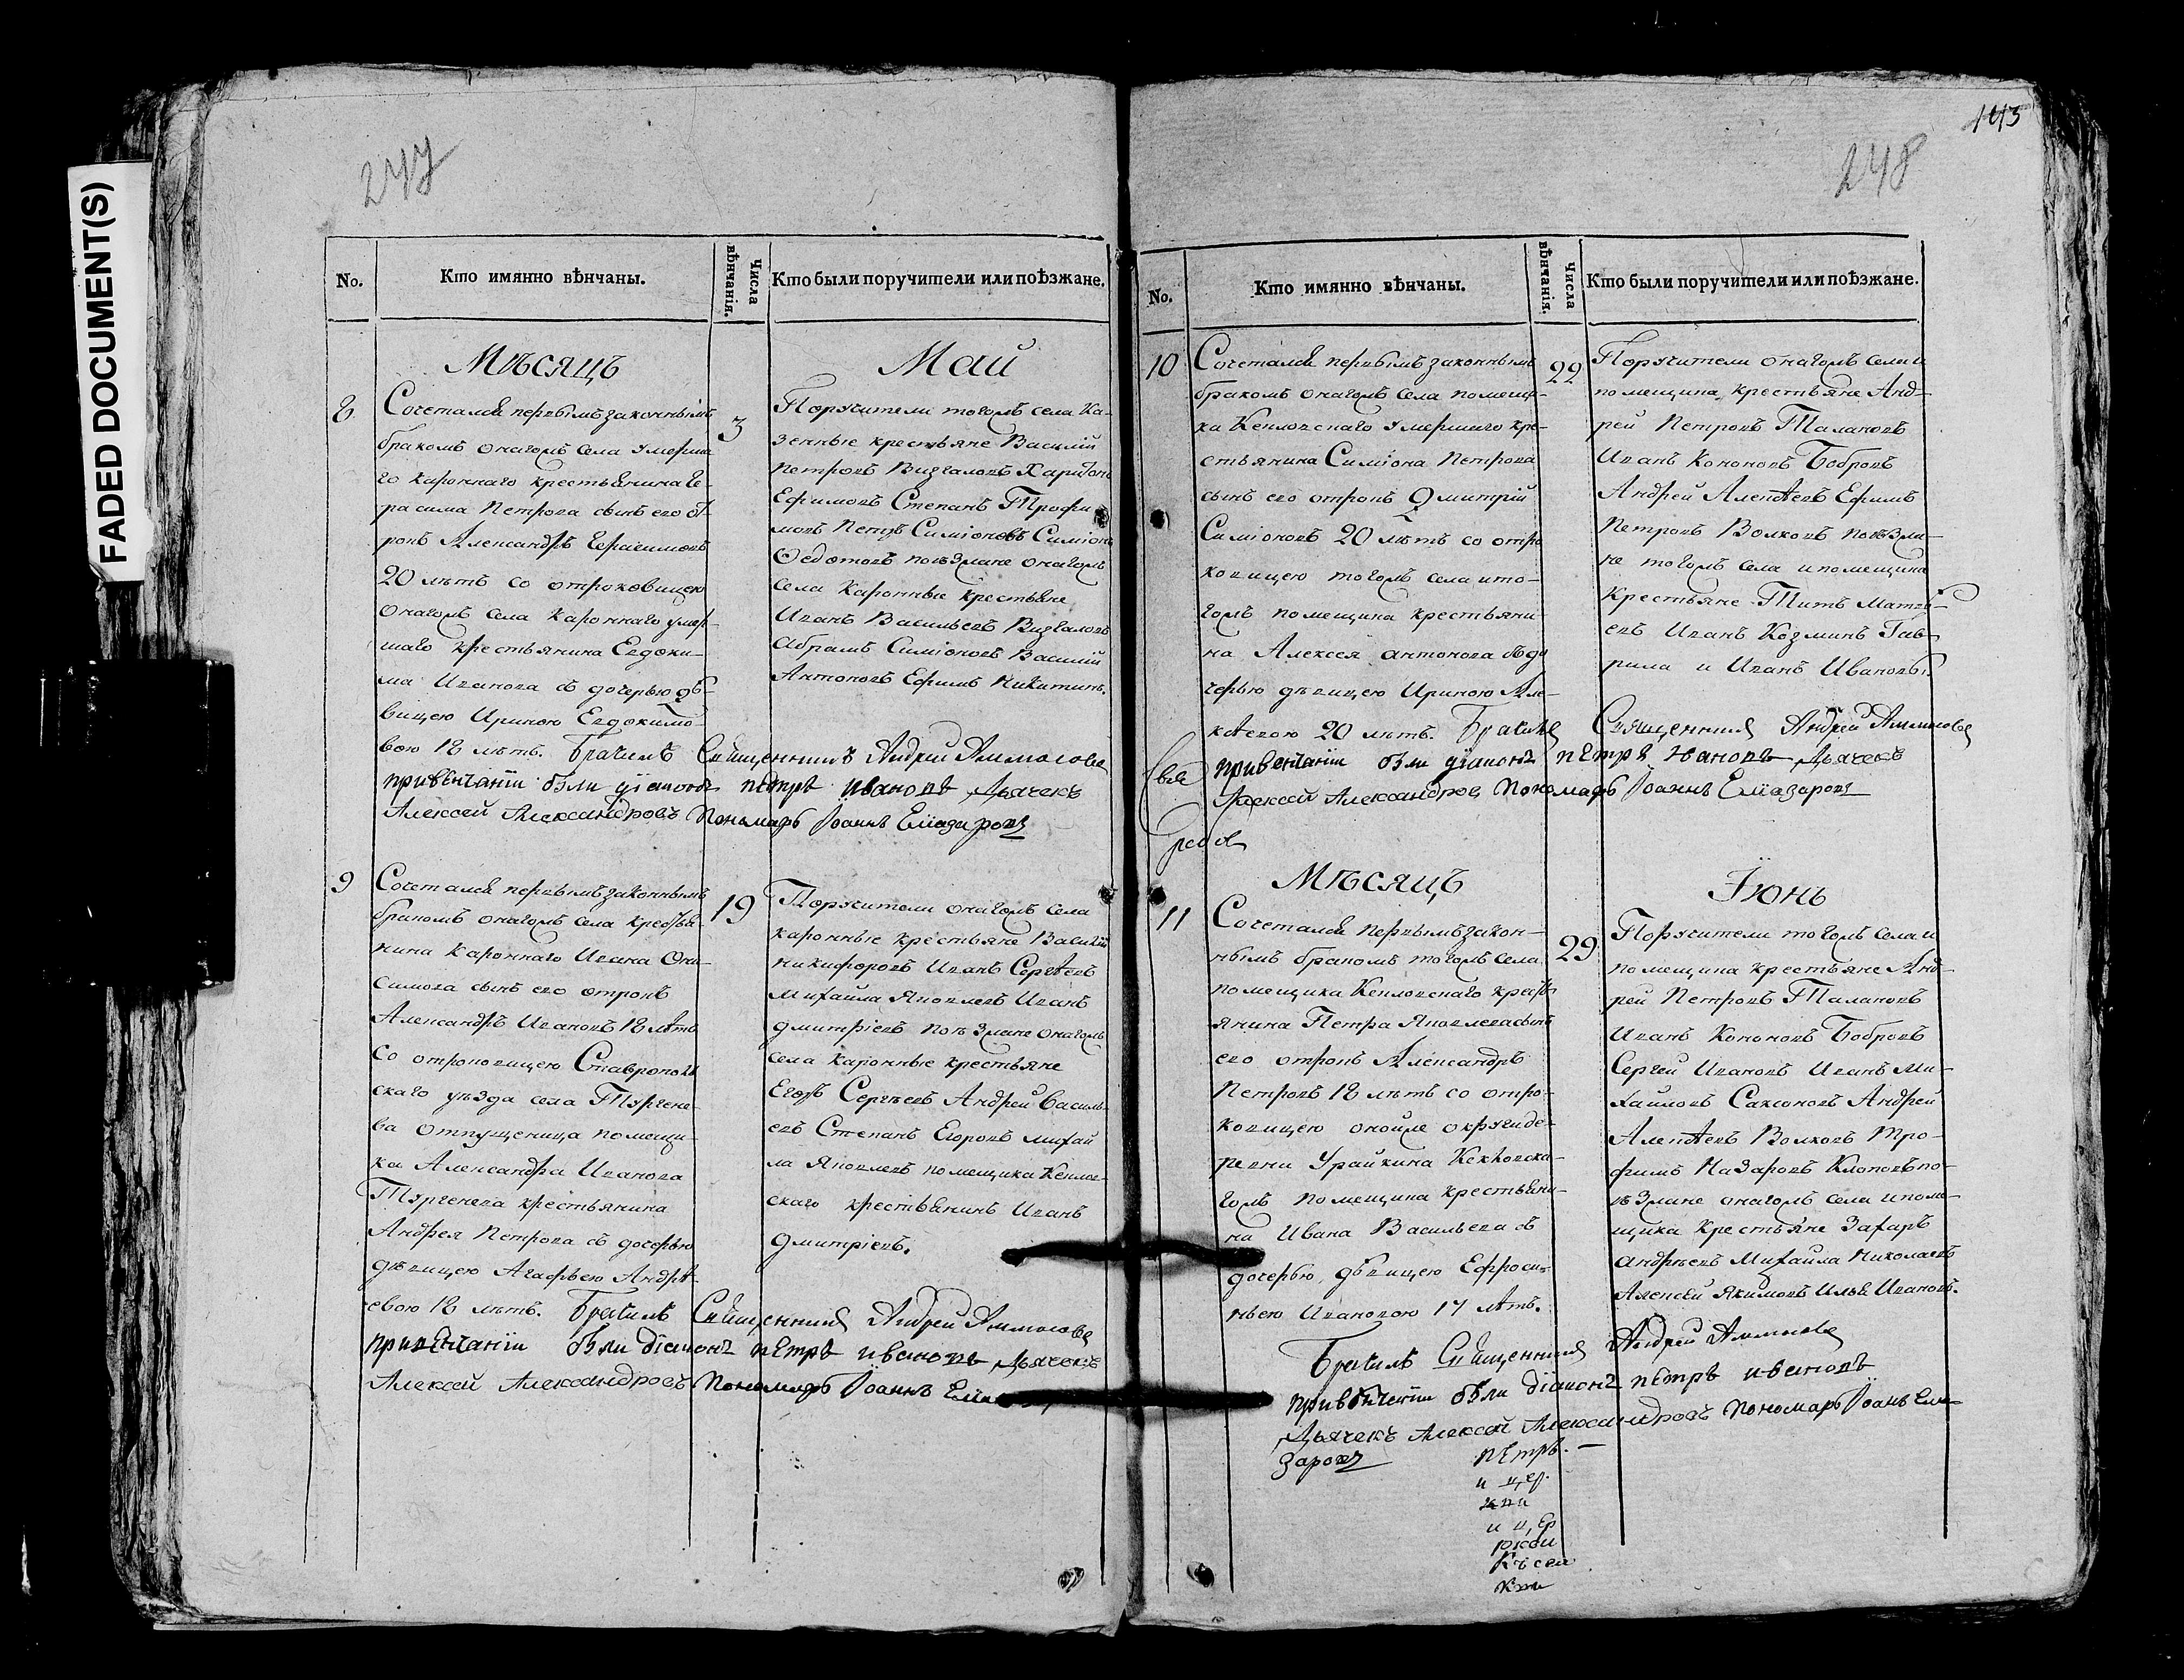 FADED DOCUMENT(S)
247
No.
Кто имянно вѣнчаны.
Числа вѣнчанія.
Кто были поручители или поѣзжане.
Мѣсяцъ
Май
8
Сочетался первымъ законнымъ
бракомъ онагожъ села умерша-
го каронного крестьянина Ге-
расима Петрова сынъ его от-
рокъ Александръ Герасимовъ
20 лѣтъ со отроковицею
онагожъ села каронного умер-
шаго крестьянина Евдоки-
ма Иванова съ дочерью дѣ-
вицею Ириною Евдокимо-
вою 18 лѣтъ. Брачилъ Священникъ Андрей Аммосовъ
привѣнчаніи были діаконъ пѣтръ ивановъ Дьячекъ
Алексей Александровъ Пономарь Іоаннъ Еліазаровъ
3
Поручители тогожъ села ка-
зенные крестьяне Василій
Петровъ Визгаловъ Харитонъ
Ефимовъ Степанъ Трофи-
мовъ Петръ Симіоновъ Симіонъ
Ѳедотовъ поѣзжане онагожъ
села каронные крестьяне
Иванъ Васильевъ Визгаловъ
Абрамъ Симіоновъ Василій
Антоновъ Ефимъ Никитинъ.
9
Сочетался первымъ законнымъ
бракомъ онагожъ села кресть-
нина каронного Ивана Они-
симова сынъ его отрокъ
Александръ Ивановъ 18 лѣтъ
со отроковицею Ставрополь
скаго уѣзда села Тургене-
ва отпущеница помещи-
ка Александра Иванова
Тургенева крестьянина
Андрея Петрова съ дочерью
дѣвицею Агафьею Андрѣ-
евою 18 лѣтъ. Брачилъ Священникъ Андрей Аммосовъ
привѣнчаніи были діаконъ пѣтръ ивановъ Дьячекъ
Алексей Александровъ Пономарь Іоаннъ
19
Поручители онагожъ села
каронные крестьяне Василій
Никифоровъ Иванъ Сергѣевъ
Михайла Яковлевъ Иванъ
Дмитріевъ поѣзжане онагожъ
села каронные крестьяне
Егоръ Сергѣевъ Андрей Василь-
евъ Степанъ Егоровъ Михай
ла Яковлевъ помещика
скаго крестьянинъ Иванъ
Дмитріевъ.
143
248
No.
Кто имянно вѣнчаны.
Числа вѣнчанія.
Кто были поручители или поѣзжане.
10
Сочетался первымъ законнымъ
бракомъ онагожъ села помещи-
ка умершаго кре-
стьянина Симіона Петрова
сынъ его отрокъ Дмитрій
Симіоновъ 20 лѣтъ со отро
ковицею тогожъ села ито-
гожъ помещика крестьяни-
на Алексея Антонова съ до
черью дѣвицею Ириною Але-
ксѣевою 20 лѣтъ. Брачилъ Священникъ Андрей Аммосовъ
привенчаніи были діаконъ пѣтръ Ивановъ Дьячекъ
Алексей Александровъ Пономарь Іоаннъ Еліазаровъ
22
Поручители онагожъ села и
помещика крестьяне Анд-
рей Петровъ Талановъ
Иванъ Кононовъ Бобровъ
Андрей Алексѣевъ Ефимъ
Петровъ Волковъ поѣзжа-
не тогожъ села и помещика
Крестьяне Титъ Матвѣ-
евъ Иванъ Козминъ Гав-
рила и Иванъ Ивановы.
Мѣсяцъ
Іюнь
11
Сочетался первымъ закон-
нымъ бракомъ тогожъ села
помещика крестъ-
янина Петра Яковлева сынъ
его отрокъ Александръ
Петровъ 18 лѣтъ со отро-
ковицею онойже округи де-
ревни Урайкина
гожъ помещика крестьяни-
на Ивана Васильева съ
дочерью дѣвицею Ефроси-
ньею Ивановою 17 лѣтъ.
29
Поручители тогожъ села и
помещика крестьяне Анд-
рей Петровъ Талановъ
Иванъ Кононовъ Бобровъ
Сергей Ивановъ Иванъ Ми-
хайловъ Саксоновъ Андрей
Алексѣевъ Волковъ Тро-
фимъ Назаровъ Клоповъ по-
ѣзжане онагожъ села и поме-
щика крестьяне Захаръ
Андрѣевъ Михайла Николаевъ
Алексей Якимовъ Илья Ивановъ.
Брачилъ Священникъ Андрей Аммосовъ
привѣнчаніи были діаконъ пѣтръ ивановъ
Дьячекъ Алексей Александровъ Пономарь Іоанъ Елиа-
заровъ
пѣтръ.